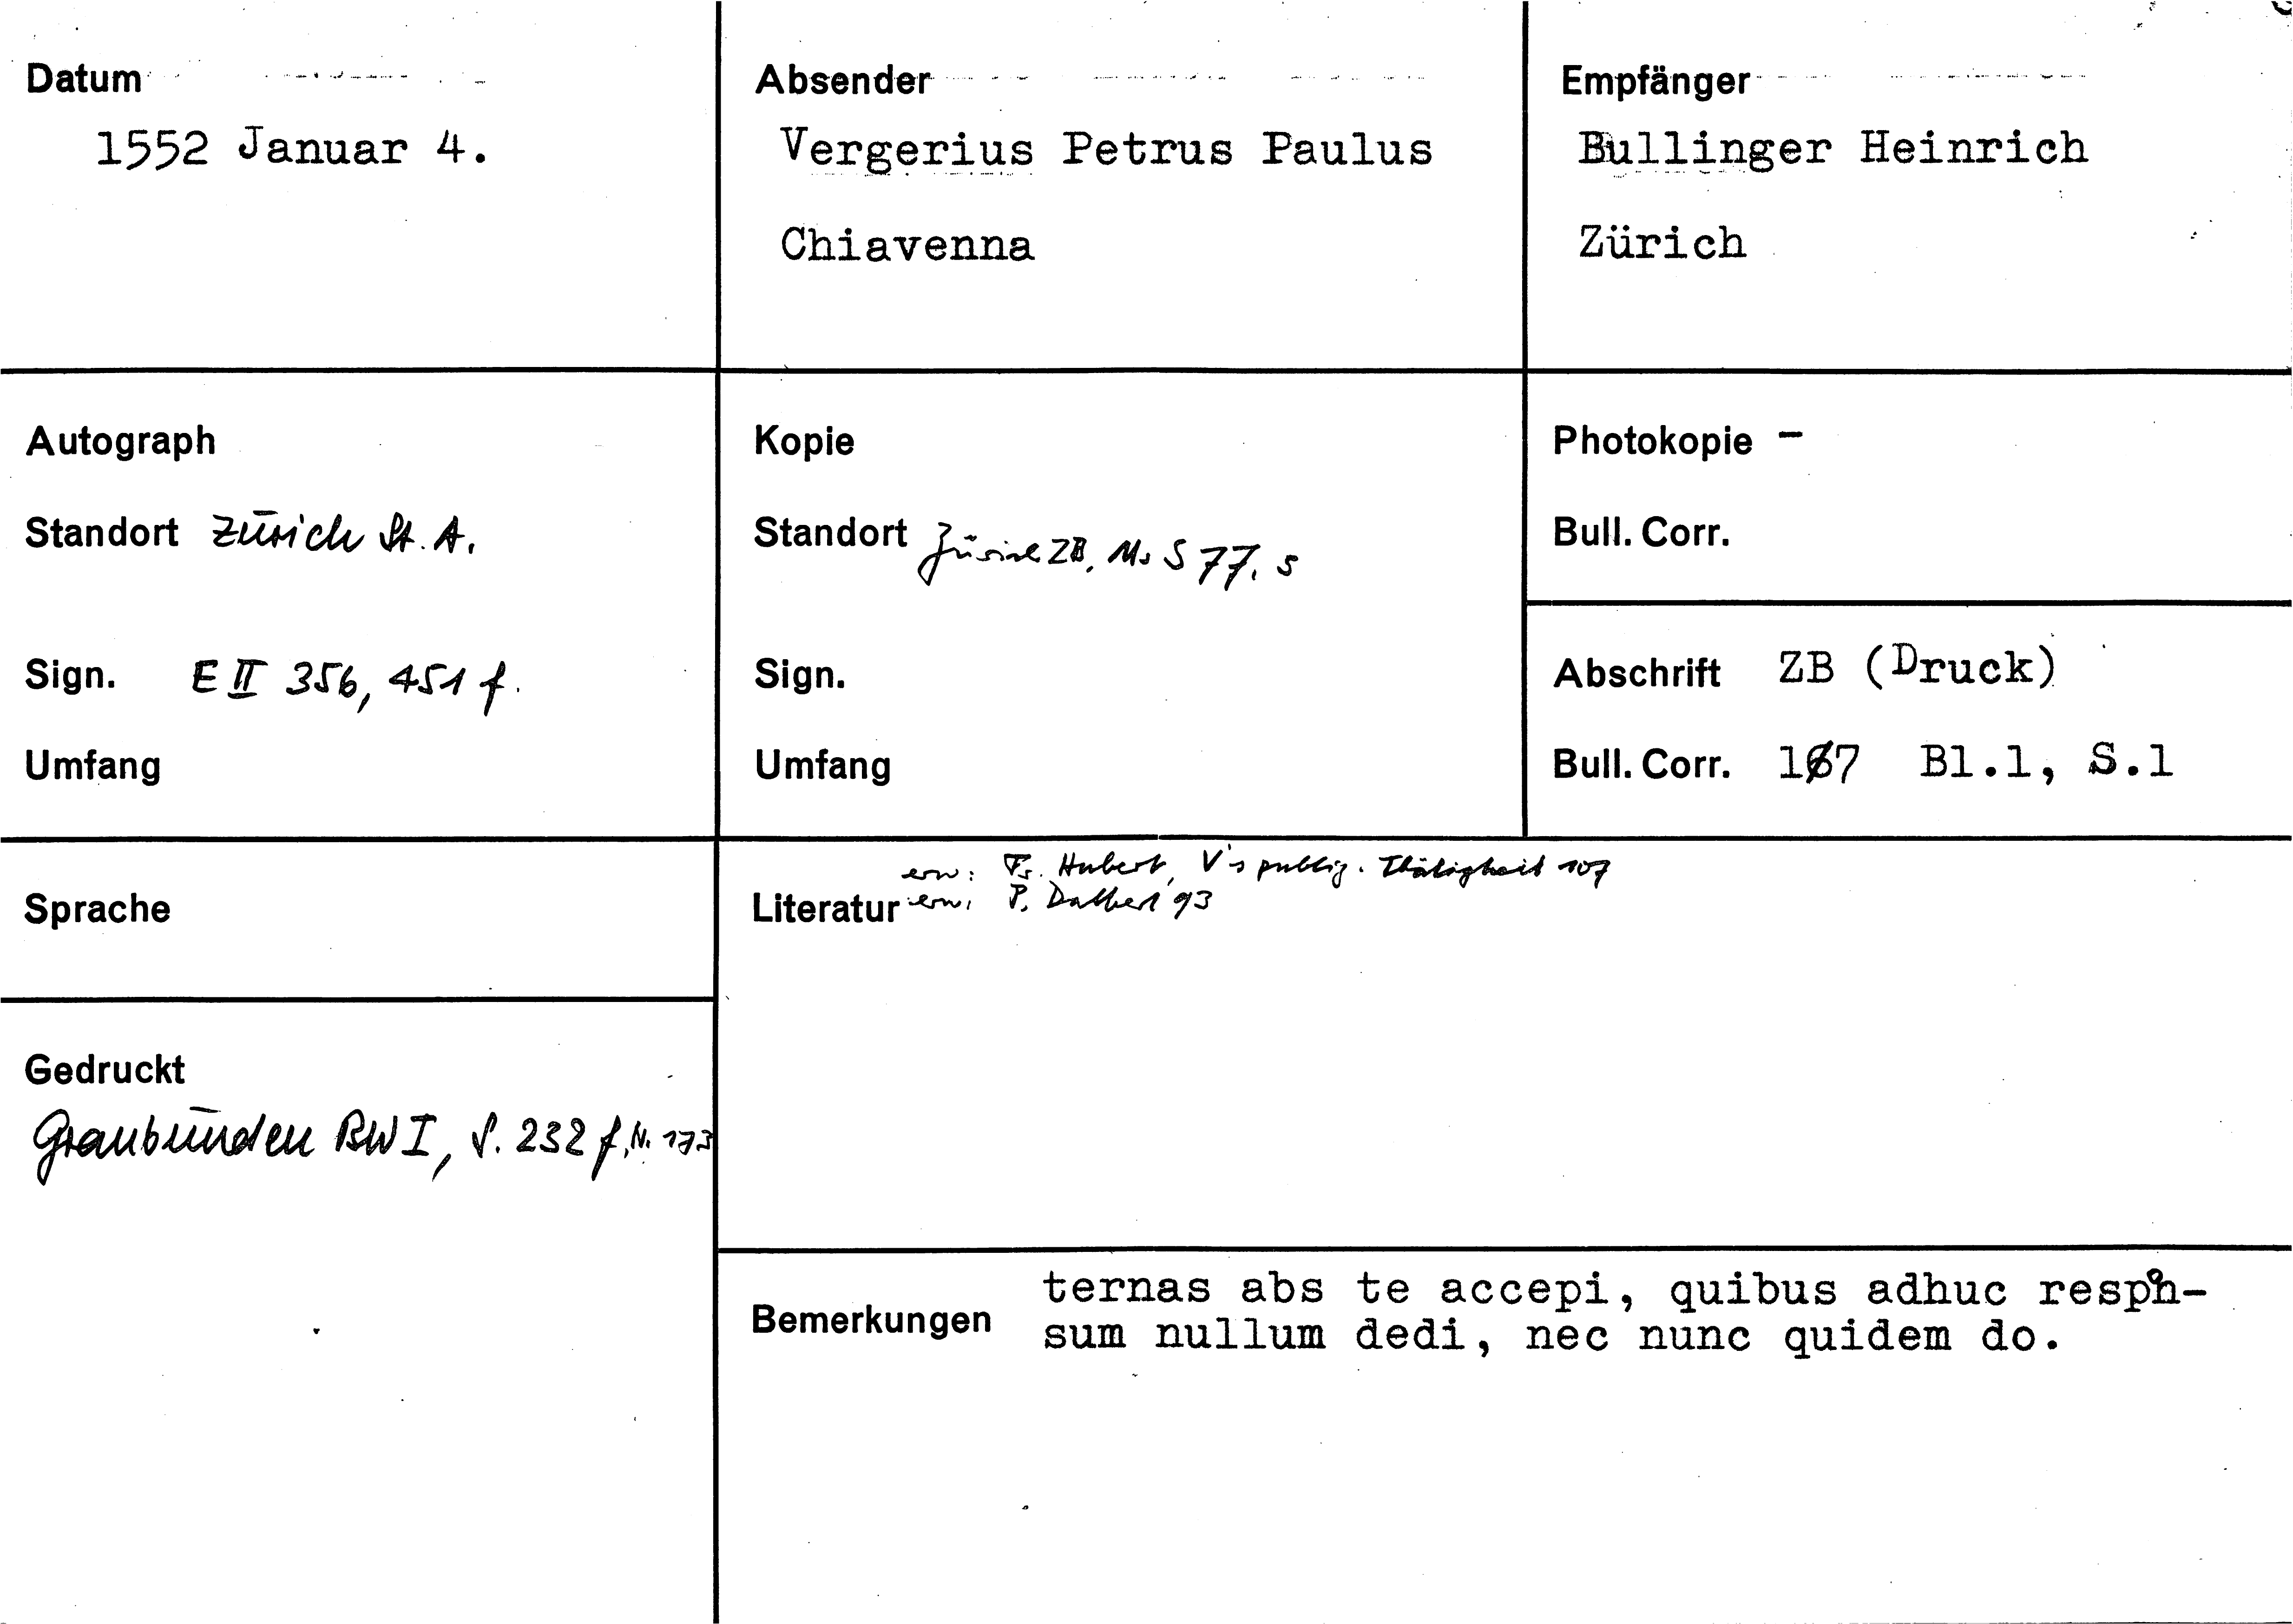 Datum
1552 Januar 4.
Absender
Vergerius Petrus Paulus
Chiavenna
Empfänger
Bullinger Heinrich
Zürich
Autograph
Standort Zürich St. A.
Sign. E II 356, 451 f.
Umfang
Kopie
Standort Zürich ZB, Ms S 77, 5
Sign.
Umfang
Photokopie -
Bull. Corr.
Abschrift ZB (Druck)
Bull. Corr. 167 Bl.1, S.1
Sprache
Gedruckt
Graubünden BW I, S. 232 f, N. 173
erw: Fr. Hubert, V's publiz. Thätigkeit 107
Literatur erw: P. Dalbert 93
Bemerkungen
ternas abs te accepi, quibus adhuc respon-
sum nullum dedi, nec nunc quidem do.